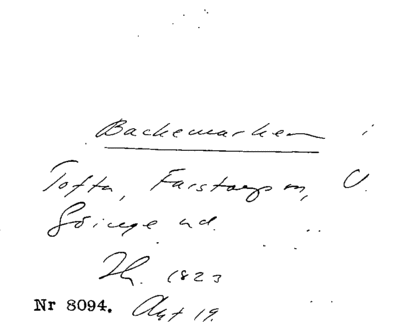 Backemarken i
Tofta, Farstorps sn, V.
Göinge hd.
Sk. 1823
Nr 8094. Akt 19.